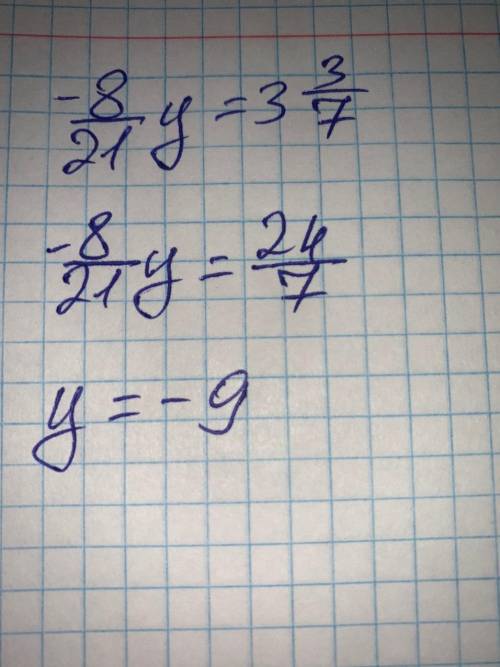 -8/21 y = 3 3/7
-8/21 y = 24/7
y = -9